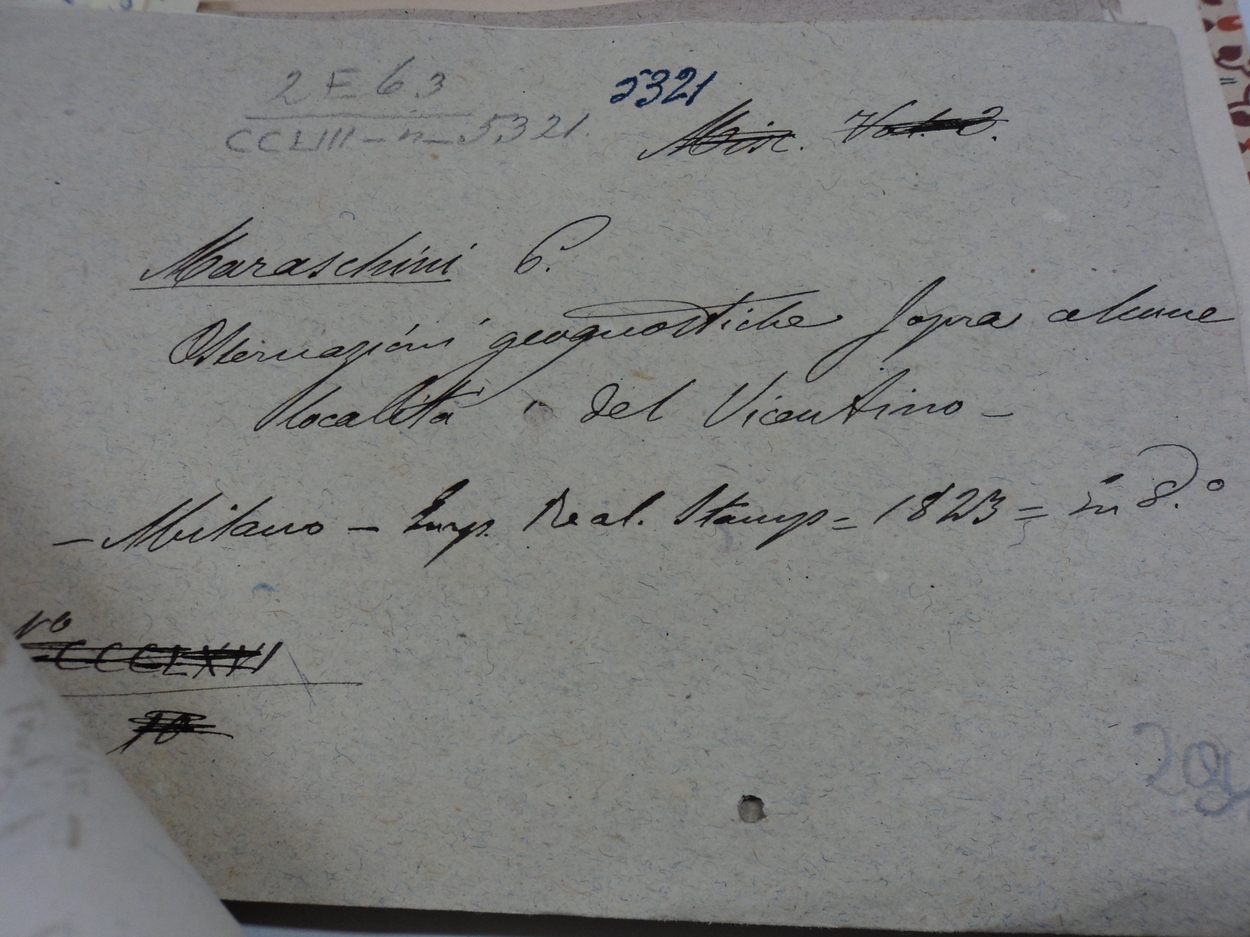 2 E 6 3
CCLIII - n - 5321.
5321
Misc. Vol. 2.
Maraschini P.
Osservazioni geognostiche sopra alcune
località del Vicentino -
- Milano - Imp. Real. Stamp = 1823 = in 8.°
CCCLXVI
10